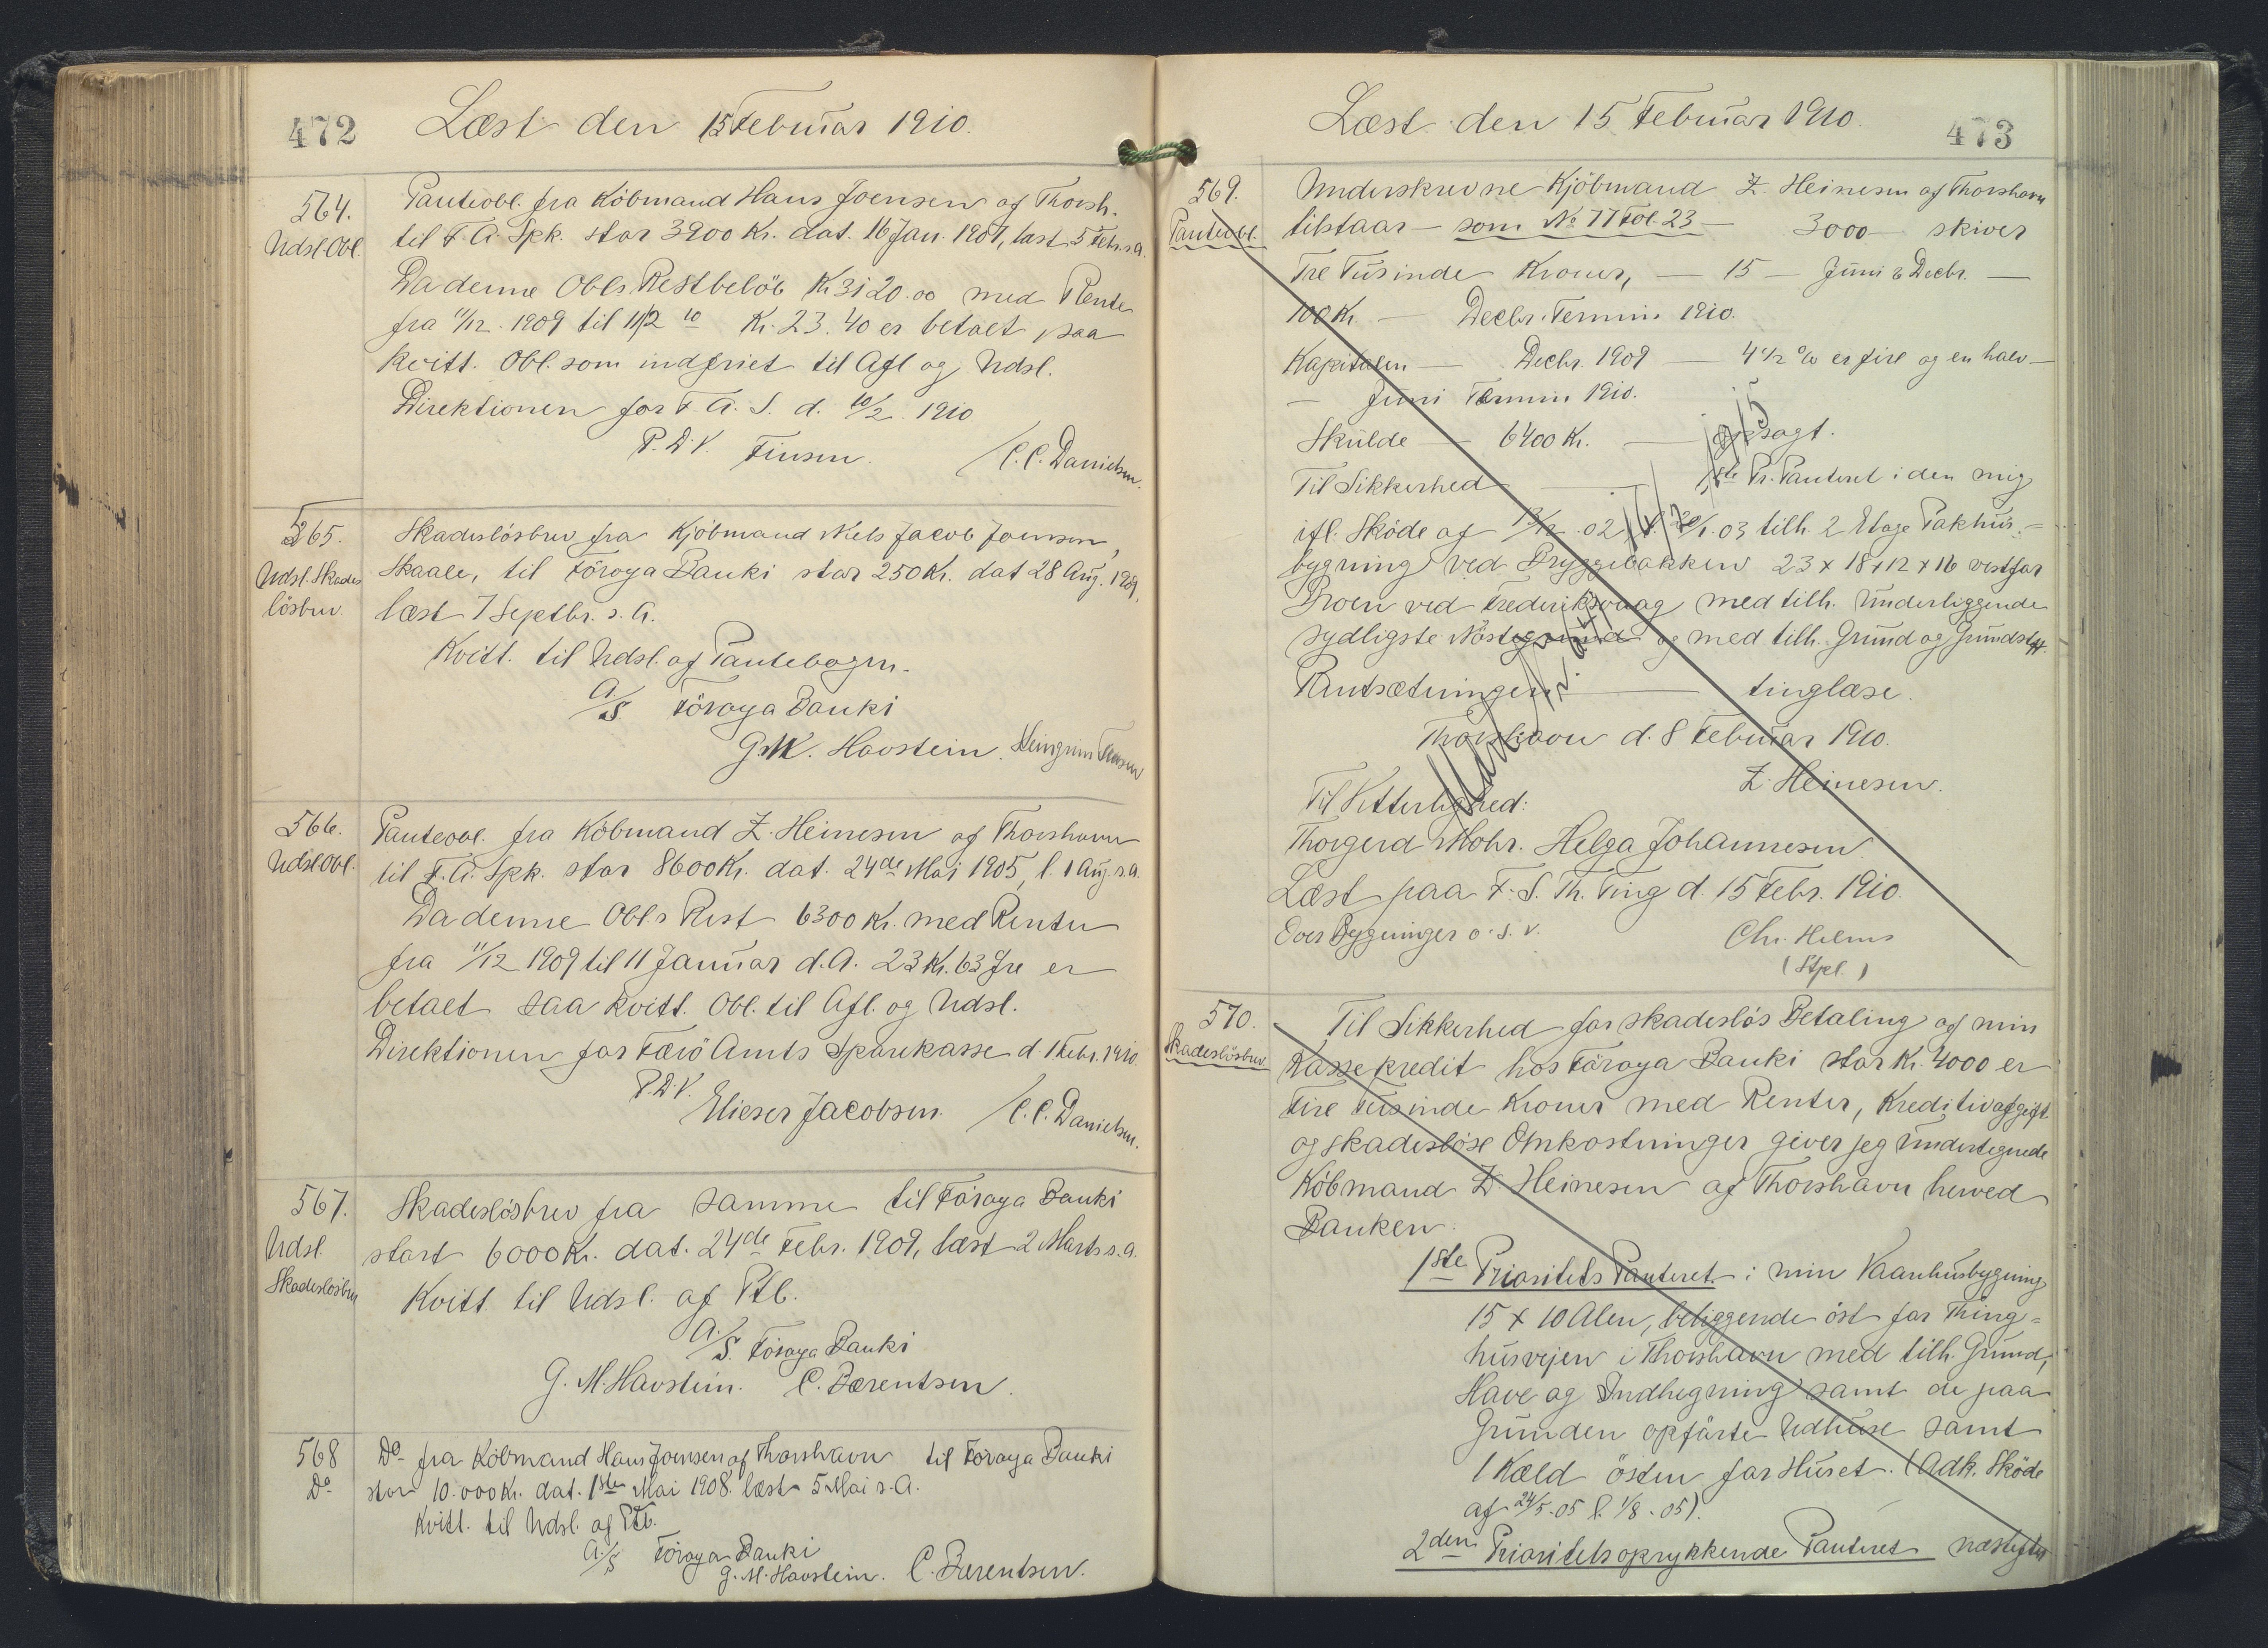 472
Læst den 15 Februar 1910.
564.
Udsl. Obl.
Panteobl. fra Köbmand Hans Joensen af Thorsh.
til F. A. Spk. stor 3900 Kr. dat. 16 Jan. 1907, læst 5 Febr. s.A.
Da denne Obls. Restbelöb Kr 3120.00 med Rente
fra 11/12 1909 til 11/2 10 Kr. 23.40 er betalt, saa
kvitt. Obl. som indfriet til Afl og Udsl.
Direktionen for F. A. S. d. 10/2 1910
P. D. V. Finsen. / C. C. Danielsen.
565.
Udsl. Skades
lösbrev.
Skadeslösbrev fra Kjöbmand Niels Jacob Joensen,
Skaale, til Föroya Banki stor 250 Kr. dat 28 Aug. 1909,
læst 7 Septbr. s. A.
Kvitt. til Udsl. af Pantebogen.
A/S Föroya Banki
G. M. Havstein.
566.
Udsl Obl.
Panteobl. fra Köbmand Z. Heinesen af Thorshavn
til F. A. Spk. stor 8600 Kr. dat. 24de Mai 1905, l. 1 Aug. s.A.
Da denne Obls Rest 6300 Kr. med Renter
fra 11/12 1909 til 11 Januar d.A. 23 Kr. 63 Øre er
betalt saa kvitt. Obl. til Afl. og Udsl.
Direktionen for Færö Amts Sparekasse d. 1 Febr. 1910.
P.D.V.
Elieser Jacobsen. / C. C. Danielsen.
567.
Udsl.
Skadeslösbrev
Skadeslösbrev fra samme til Föroya Banki
stort 6000 Kr. dat. 24de Febr. 1909, læst 2 Marts s.A.
Kvitt. til Udsl. af Ptb.
A/S. Föroya Banki
G. M. Havstein. C. Bærentsen.
568
Do
Do fra Köbmand Hans Joensen af Thorshavn til Föroya Banki
stor 10.000 Kr. dat. 1ste Mai 1908. læst 5 Mai s.A.
Kvitt. til Udsl. af Ptb.
A/S Föroya Banki
G. M. Havstein. C. Bærentsen.
Læst den 15 Februar 1910.
473
569.
Panteobl.
Underskrevne Kjöbmand Z. Heinesen af Thorshavn
tilstaar — som No 77 Fol. 23 — 3000 — skiver
Tre Tusinde Kroner, — 15 — Juni & Decbr. —
100 Kr. — Decbr. Termin 1910.
Kapitalen — Decbr. 1909 — 4 1/2 % er fire og en halv —
— Juni Termin 1910.
Skulde — 6400 Kr. — opsagt.
Til Sikkerhed — 1ste Pr. Panteret i den mig
ifl. Sköde af 13/12 .02 l. 20/1 03 tilh. 2 Etage Pakhus=
bygning ved Bryggebakken 23 x 18 x 12 x 16 vestfor
Broen ved Frederiksvaag med tilh. underliggende
sydligste Nöstegrund og med tilh. Grund og Grundstk.
Pantsætningen — tinglæse.
Thorshavn d. 8 Februar 1910.
Z. Heinesen.
Til Vitterlighed:
Thorgerd Mohr. Helga Johannesen
Læst paa F. S. Th. Ting d. 15 Febr. 1910.
Over Bygninger o. s. v.
Chr. Helms
(Stpl.)
570.
Skadeslösbrev
Til Sikkerhed for skadeslös Betaling af min
Kassekredit hos Föroya Banki stor Kr. 4000 er
Fire Tusinde Kroner med Renter, Kreditivafgift
og skadeslöse Omkostninger giver jeg undertegnede
Köbmand Z. Heinesen af Thorshavn herved
Banken.
1ste Prioritets Panteret i min Vaanhusbygning
15 x 10 Alen, beliggende öst for Thing=
husvejen i Thorshavn med tilh. Grund,
Have og Indhegning samt de paa
Grunden opförte Udhuse samt
1 Kæld östen for Huset. (Adk. Sköde
af 24/5 .05 l. 1/8 .05).
2den Prioritets oprykkende Panteret næstefter